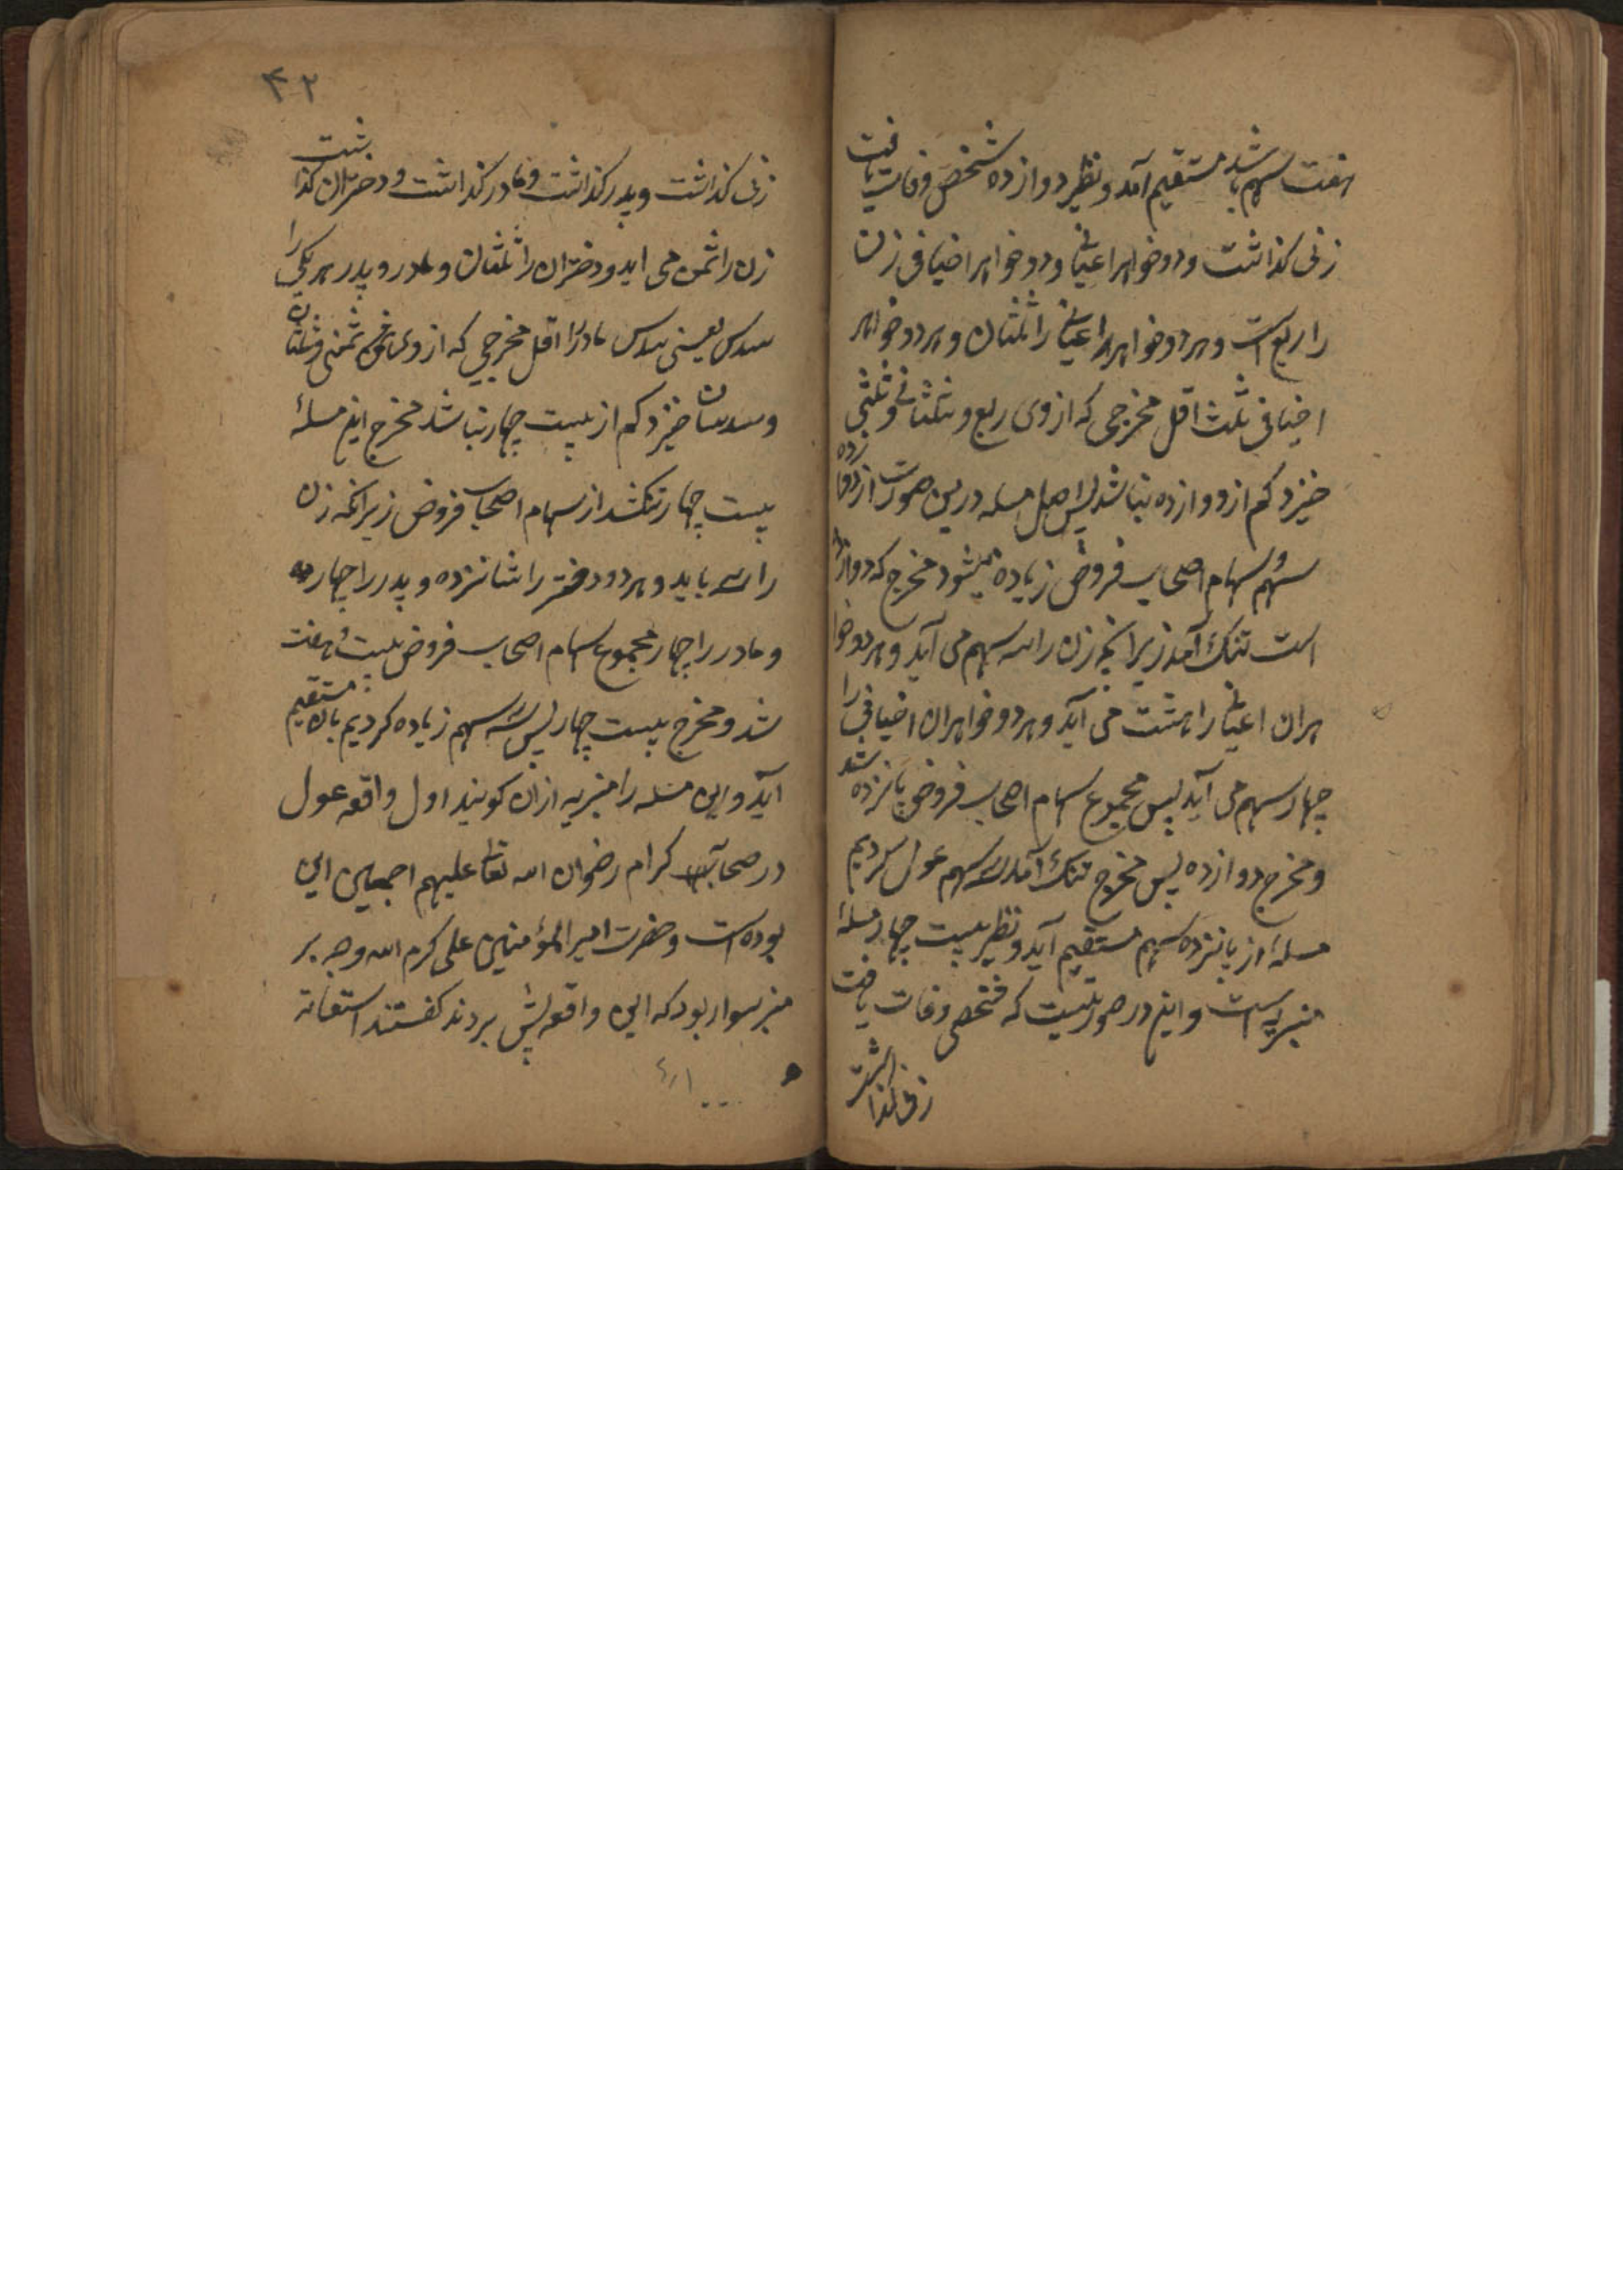 هفت سهم باشد مستقیم آمد و نظیر دوازده شخص وفات یافت
زنی کذاشت و دو خواهر اعیانی و دو خواهر اخیافی زن
را ربع است و هر دو خواهر اعیانی را ثلثان و هر دو خواهر
اخیافی ثلث اقل مخرجی که از وی ربع و ثلثانی و ثلثی
خیزد کم از دوازده نباشد پس اصل مسله درین صورت از دوازده
سهم و سهام اصحاب فروض زیاده میشود مخرج که دوازده
است تنک آمد زیرانچه زن را سه سهم می آید و هر دو خوا
هران اعیانی را هشت می آید و هر دو خواهران اخیافی را
چهار سهم می آید پس مجموع سهام اصحاب فروض پانزده شد
و مخرج دوازده پس مخرج تنک آمد سه سهم عول کردیم
مسلهٔ از پانزده سهم مستقیم آید و نظیر بیست چهار مسلهٔ
منبریه است و این در صورتیست که شخصی وفات یافت
زنی کذاشت
۴۲
زنی کذاشت و پدر کذاشت و مادر کذاشت و دختران کذاشت
زن را ثمن می اید و دختران را ثلثان و مادر و پدر هر یکی را
سدس یعنی سدس مادر را اقل مخرجی که از وی ثمنی و ثلثان
و سدسان خیزد کم از بیست چهار نباشد مخرج این مسلهٔ
بیست چهار تنک شد از سهام اصحاب فروض زیرانکه زن
را سه باید و هر دو دختر را شانزده و پدر را چهار
و مادر را چهار مجموع سهام اصحاب فروض بیست و هفت
شد و مخرج بیست چهار پس سه سهم زیاده کردیم تا مستقیم
آید و این مسله را منبریه ازان کویند اول واقعه عول
در صحابه کرام رضوان الله تعا علیهم اجمعین این
بوده است و حضرت امیر المؤمنین علی کرم الله وجهه بر
منبر سوار بود که این واقعه پیش بردند کفتند استغاثه